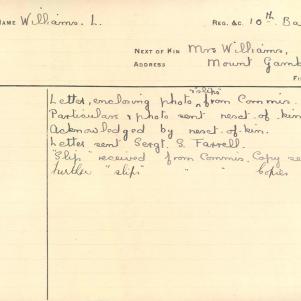 NAME Williams. L. REG. &C. 10th. Ba
NEXT OF KIN Mrs Williams,
ADDRESS Mount Gamb
FI
"slips"
Letter, enclosing photo, from Commis.
Particulars & photo sent next. of. kin
Acknowledged by next. of. kin.
Letter sent Sergt. S. Farrell.
"Slip" received from Commis. Copy se
further "slips" " " Copies